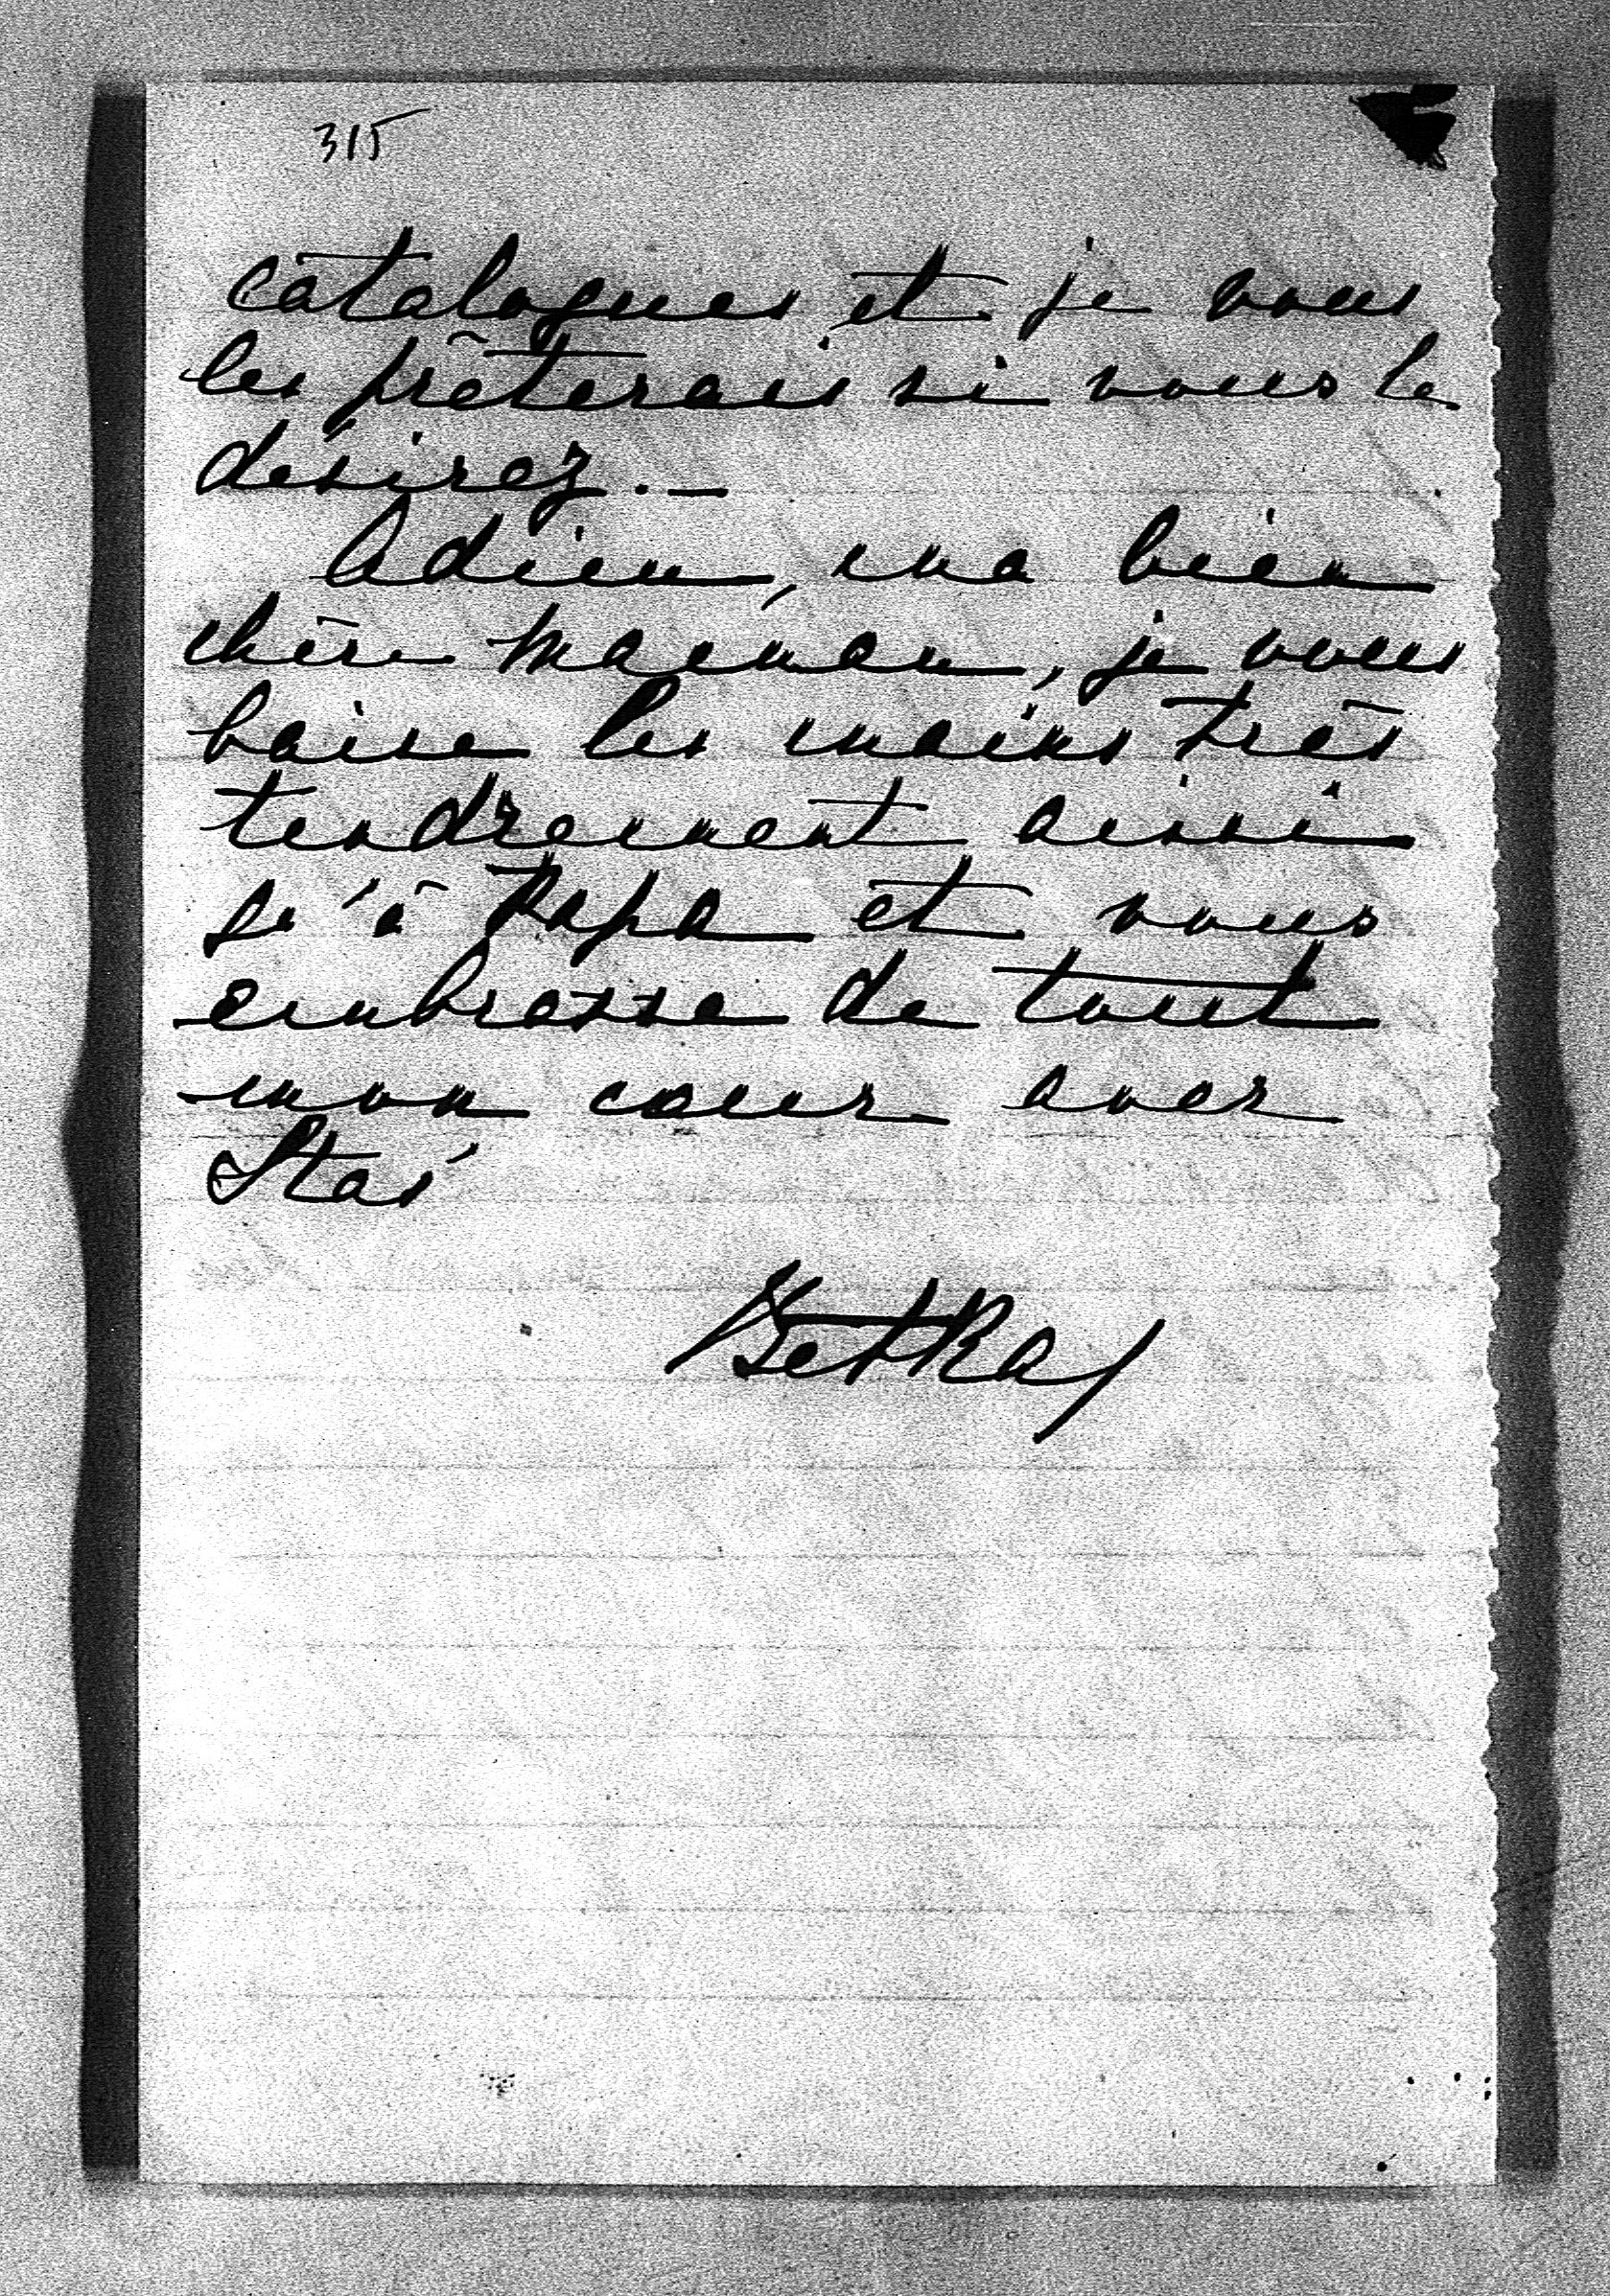 315
catalogues et je vous
les prêterais si vous le
désirez. —
Adieu, ma bien
chère Maman, je vous
baise les mains très
tendrement ainsi
qu'à Papa et vous
embrasse de tout
mon cœur avec
Staś
Betka